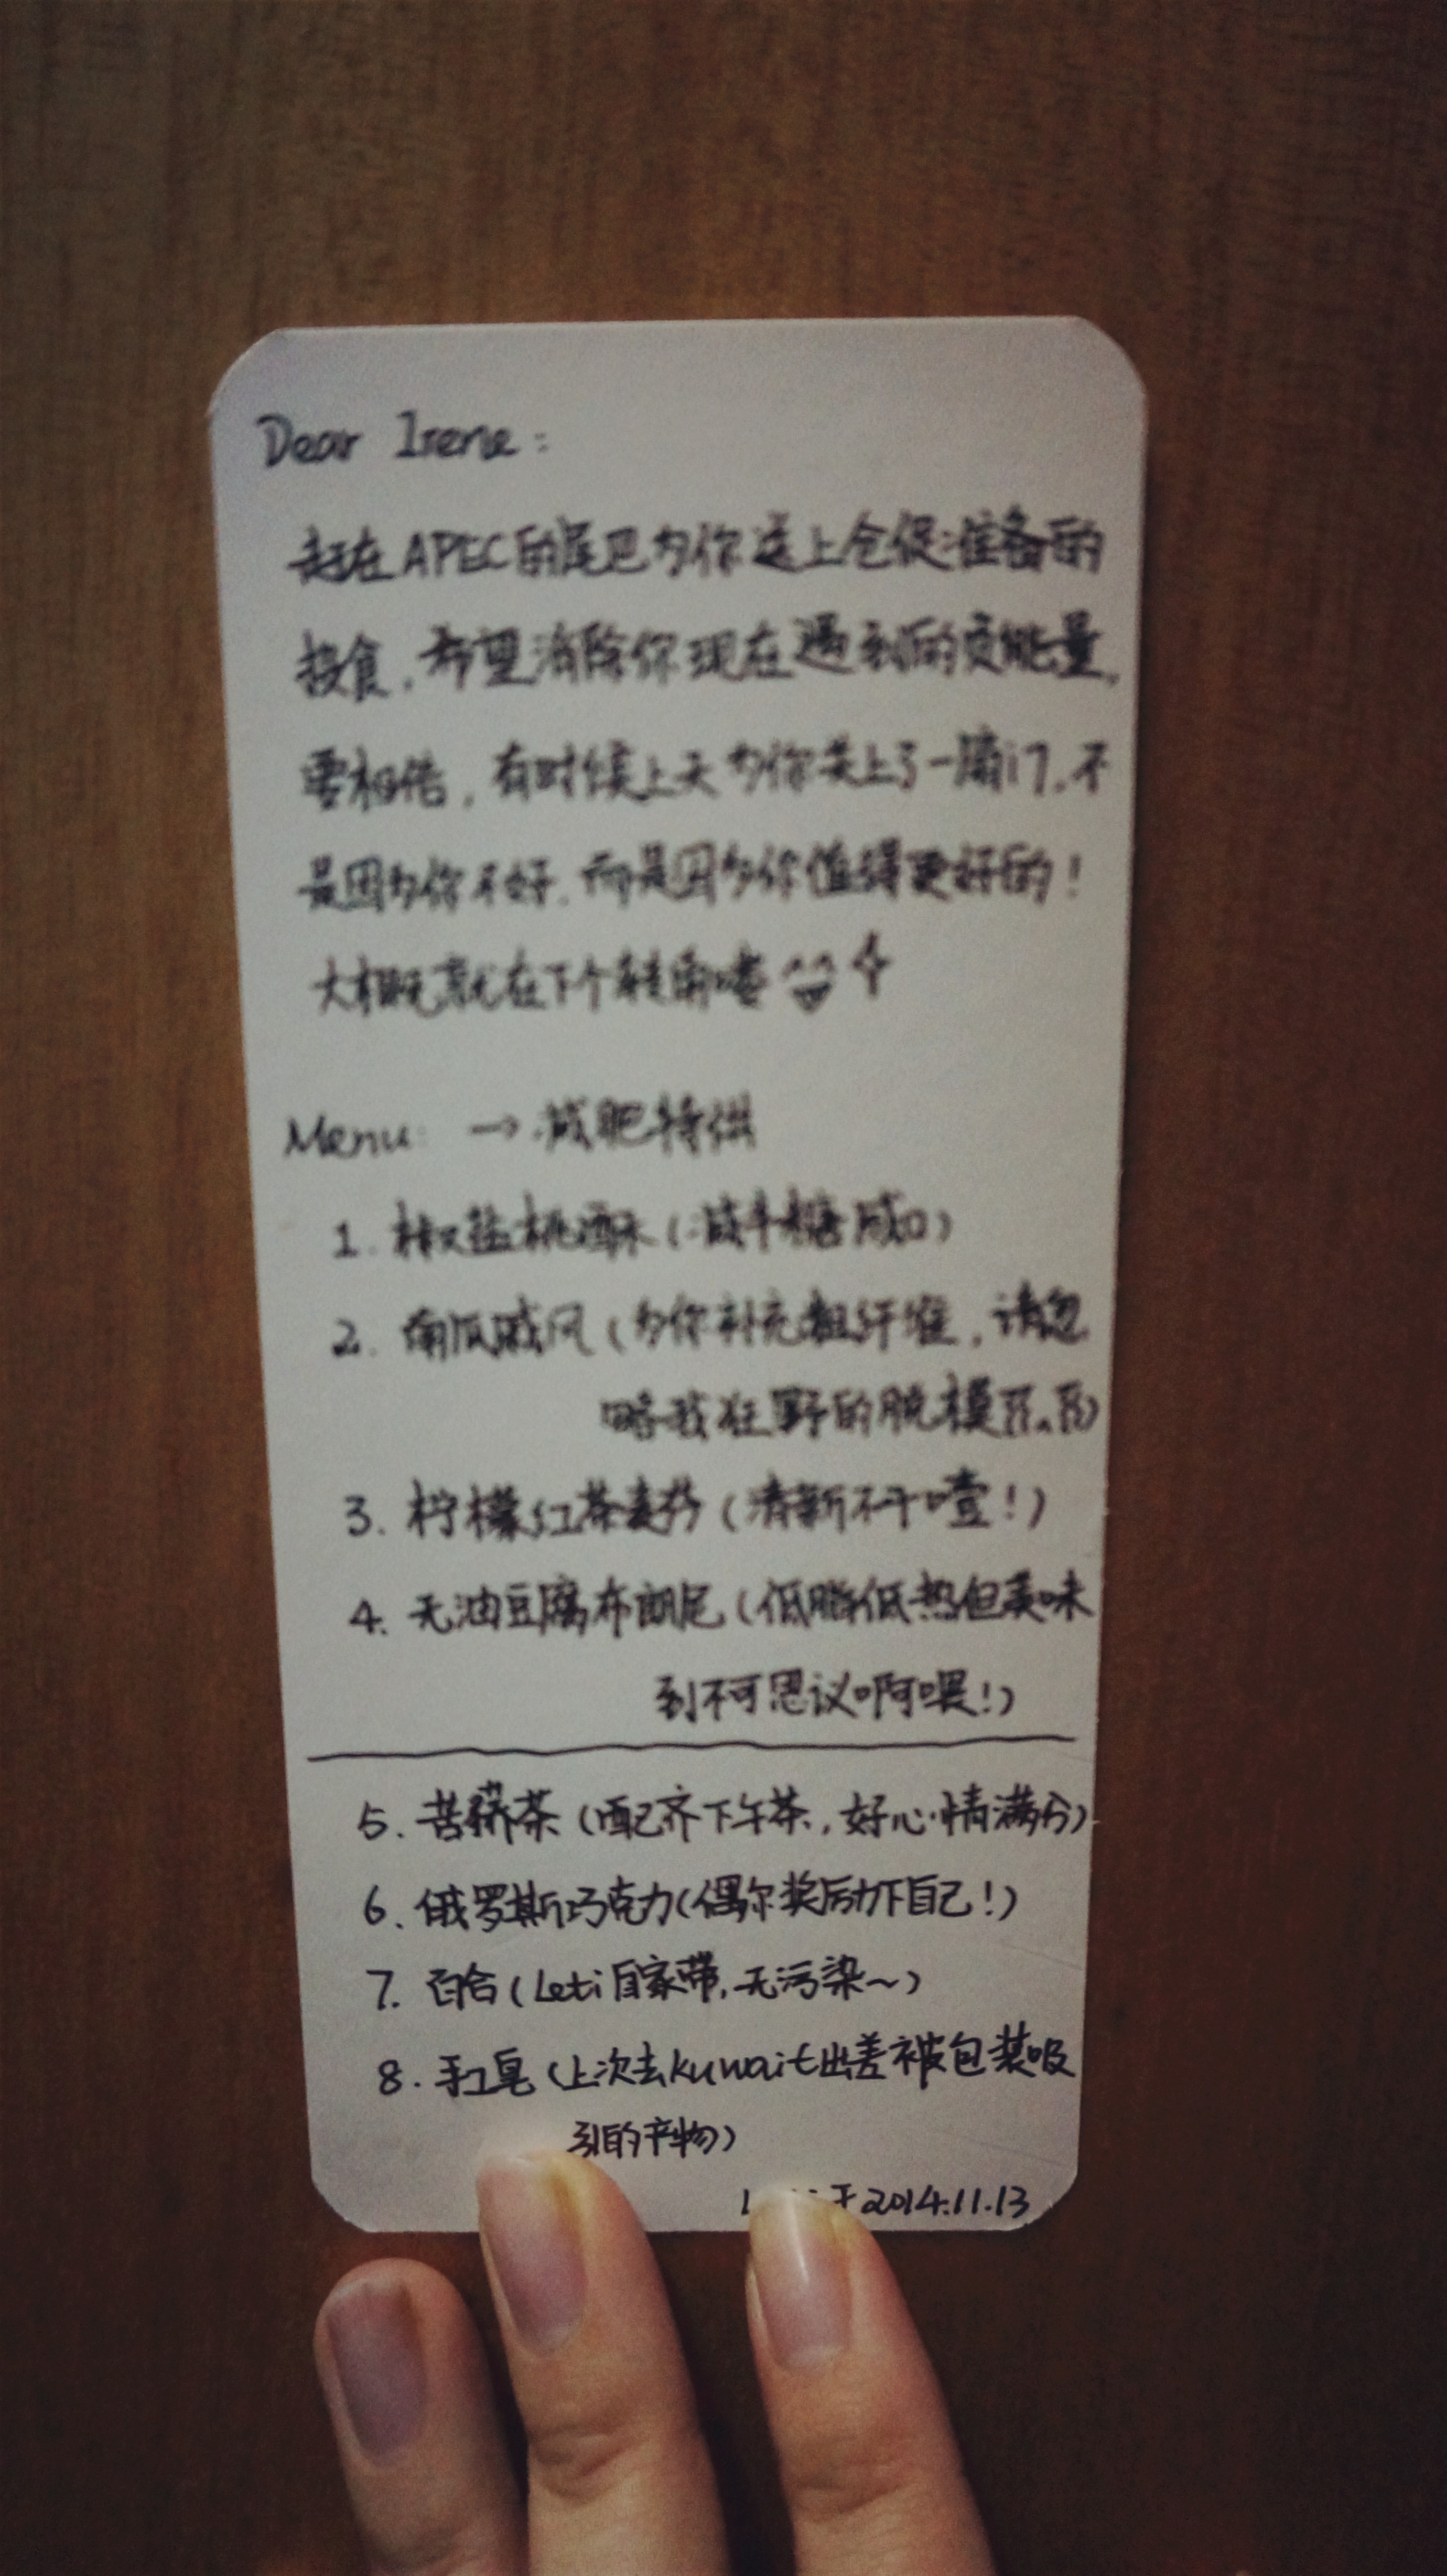 Dear Irene:
赶在APEC的尾巴为你送上仓促准备的
投食,希望消除你现在遇到的负能量,
要相信,有时候上天为你关上了一扇门,不
是因为你不好,而是因为你值得更好的!
大概就在下个转角喽
Menu: →减肥特供
1. 椒盐桃酥(减半糖 咸口)
2. 南瓜戚风(为你补充粗纤维,请忽
略我狂野的脱模
3. 柠檬红茶麦芬(清新不干噎!)
4. 无油豆腐布朗尼(低脂低热但美味
到不可思议啊喂!)
5. 苦荞茶(配齐下午茶,好心情满分)
6. 俄罗斯巧克力(偶尔奖励下自己!)
7. 百合(Leti自家带,无污染~)
8. 手工皂(上次去Kuwait出差被包装吸
引的产物)
于2014.11.13